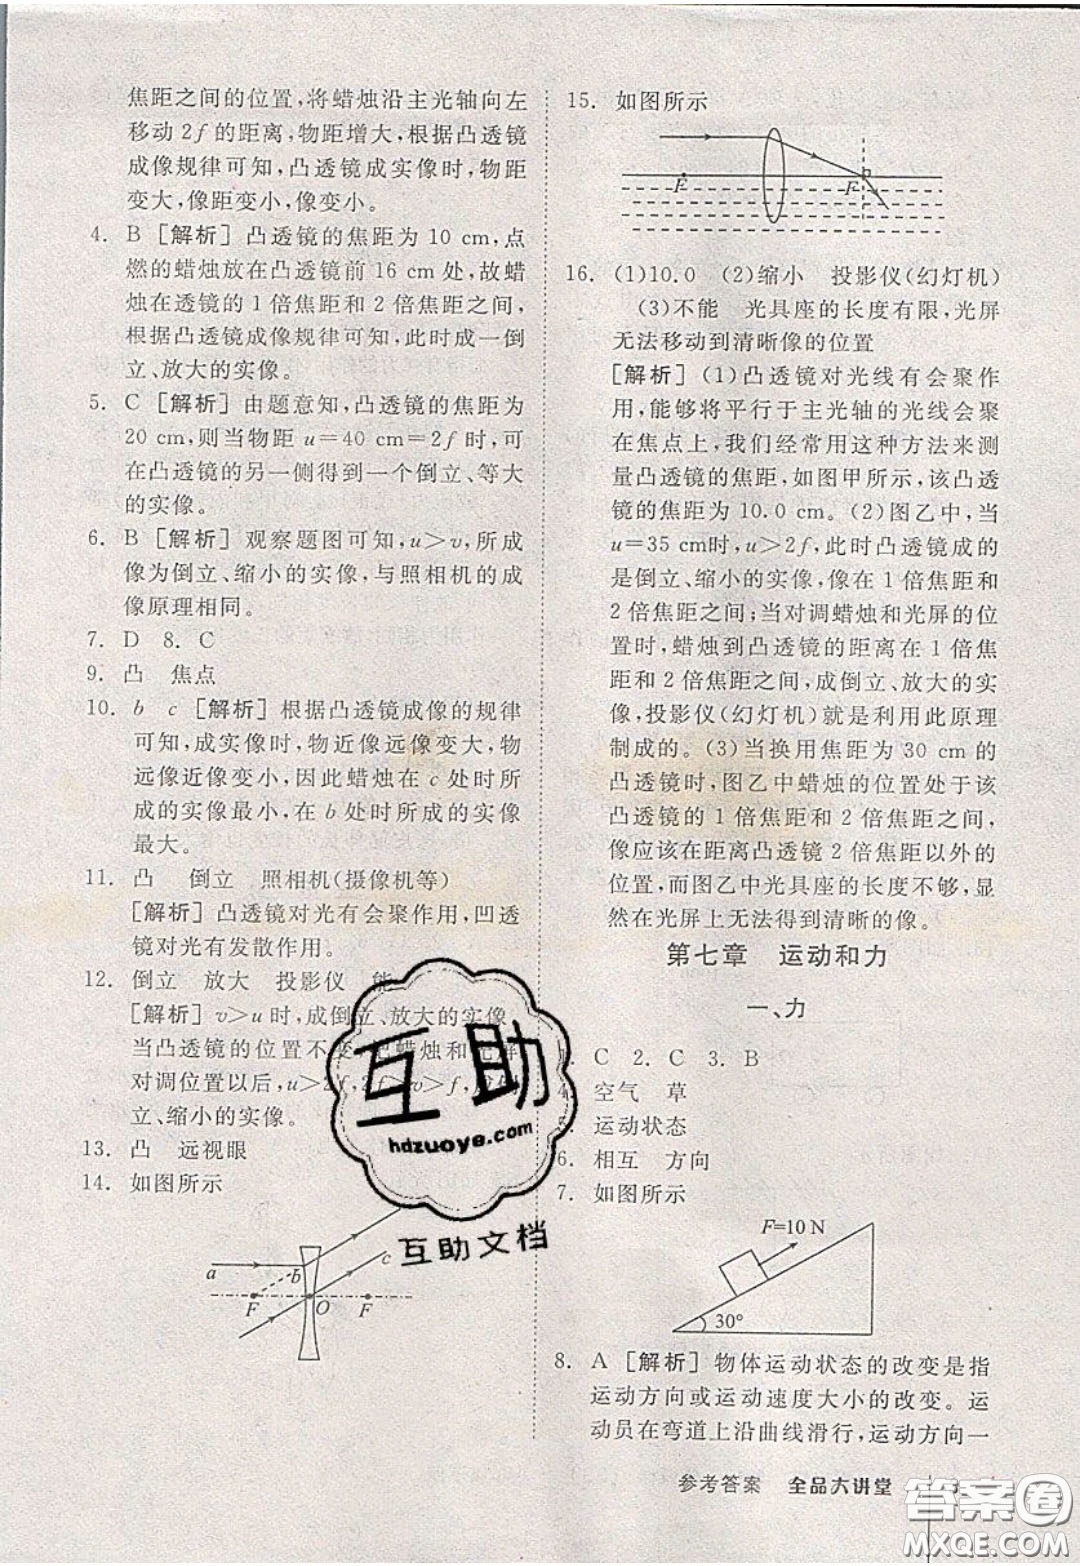 焦距之间的位置,将蜡烛沿主光轴向左
移动2f的距离,物距增大,根据凸透镜
成像规律可知,凸透镜成实像时,物距
变大,像距变小,像变小。
4. B [解析]凸透镜的焦距为10 cm,点
燃的蜡烛放在凸透镜前16 cm处,故蜡
烛在透镜的1倍焦距和2倍焦距之间,
根据凸透镜成像规律可知,此时成一倒
立、放大的实像。
5. C [解析]由题意知,凸透镜的焦距为
20 cm,则当物距u=40 cm=2f时,可
在凸透镜的另一侧得到一个倒立、等大
的实像。
6. B [解析]观察题图可知,u>v,所成
像为倒立、缩小的实像,与照相机的成
像原理相同。
7. D 8. C
9. 凸 焦点
10. b c [解析]根据凸透镜成像的规律
可知,成实像时,物近像远像变大,物
远像近像变小,因此蜡烛在c处时所
成的实像最小,在b处时所成的实像
最大。
11. 凸 倒立 照相机(摄像机等)
[解析]凸透镜对光有会聚作用,凹透
镜对光有发散作用。
12. 倒立 放大 投影仪 能
[解析]v>u时,成倒立、放大的实像,
当凸透镜的位置不变,把蜡烛和光屏
对调位置以后,u>2f,2f>v>f,成倒
立、缩小的实像。
13. 凸 远视眼
14. 如图所示
a b c
F O F
互助
hdzuoye.com
互助文档
15. 如图所示
F F
16. (1)10.0 (2)缩小 投影仪(幻灯机)
(3)不能 光具座的长度有限,光屏
无法移动到清晰像的位置
[解析](1)凸透镜对光线有会聚作
用,能够将平行于主光轴的光线会聚
在焦点上,我们经常用这种方法来测
量凸透镜的焦距,如图甲所示,该凸透
镜的焦距为10.0 cm。(2)图乙中,当
u=35 cm时,u>2f,此时凸透镜成的
是倒立、缩小的实像,像在1倍焦距和
2倍焦距之间;当对调蜡烛和光屏的位
置时,蜡烛到凸透镜的距离在1倍焦
距和2倍焦距之间,成倒立、放大的实
像,投影仪(幻灯机)就是利用此原理
制成的。(3)当换用焦距为30 cm的
凸透镜时,图乙中蜡烛的位置处于该
凸透镜的1倍焦距和2倍焦距之间,
像应该在距离凸透镜2倍焦距以外的
位置,而图乙中光具座的长度不够,显
然在光屏上无法得到清晰的像。
第七章 运动和力
一、力
1. C 2. C 3. B
4. 空气 草
5. 运动状态
6. 相互 方向
7. 如图所示
F=10 N
30°
8. A [解析]物体运动状态的改变是指
运动方向或运动速度大小的改变。运
动员在弯道上沿曲线滑行,运动方向一
参考答案 全品大讲堂
答案圈
MXQE.COM